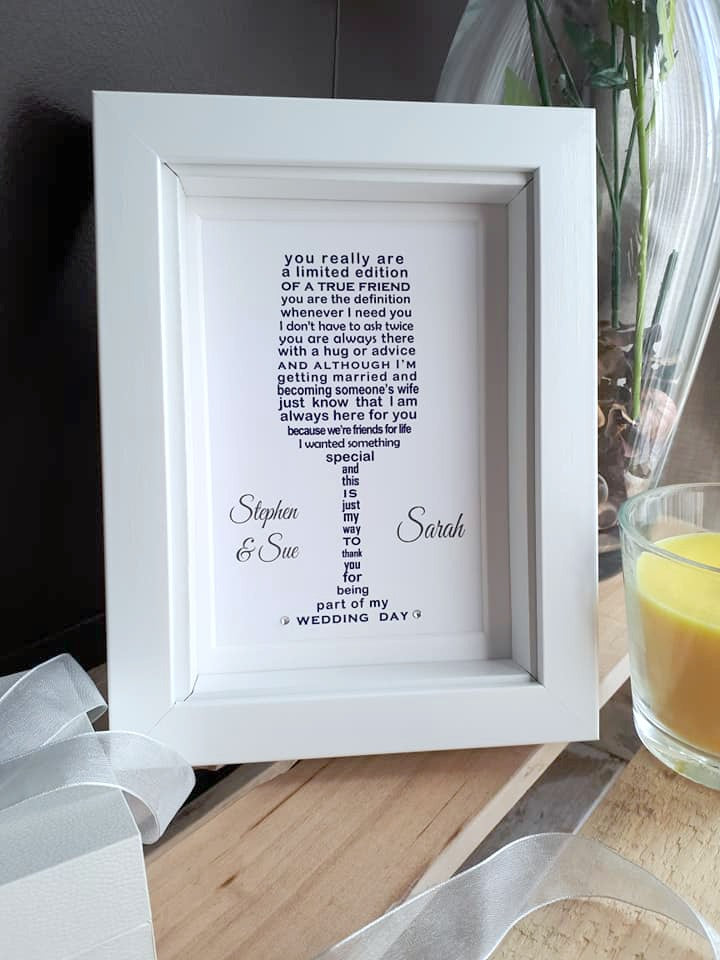 you really are
a limited edition
OF A TRUE FRIEND
you are the definition
whenever I need you
I don't have to ask twice
you are always there
with a hug or advice
AND ALTHOUGH I'M
getting married and
becoming someone's wife
just know that I am
always here for you
because we're friends for life
I wanted something
special
and
this
IS
just
my
way
TO
thank
you
for
being
part of my
WEDDING DAY
Stephen
& Sue
Sarah